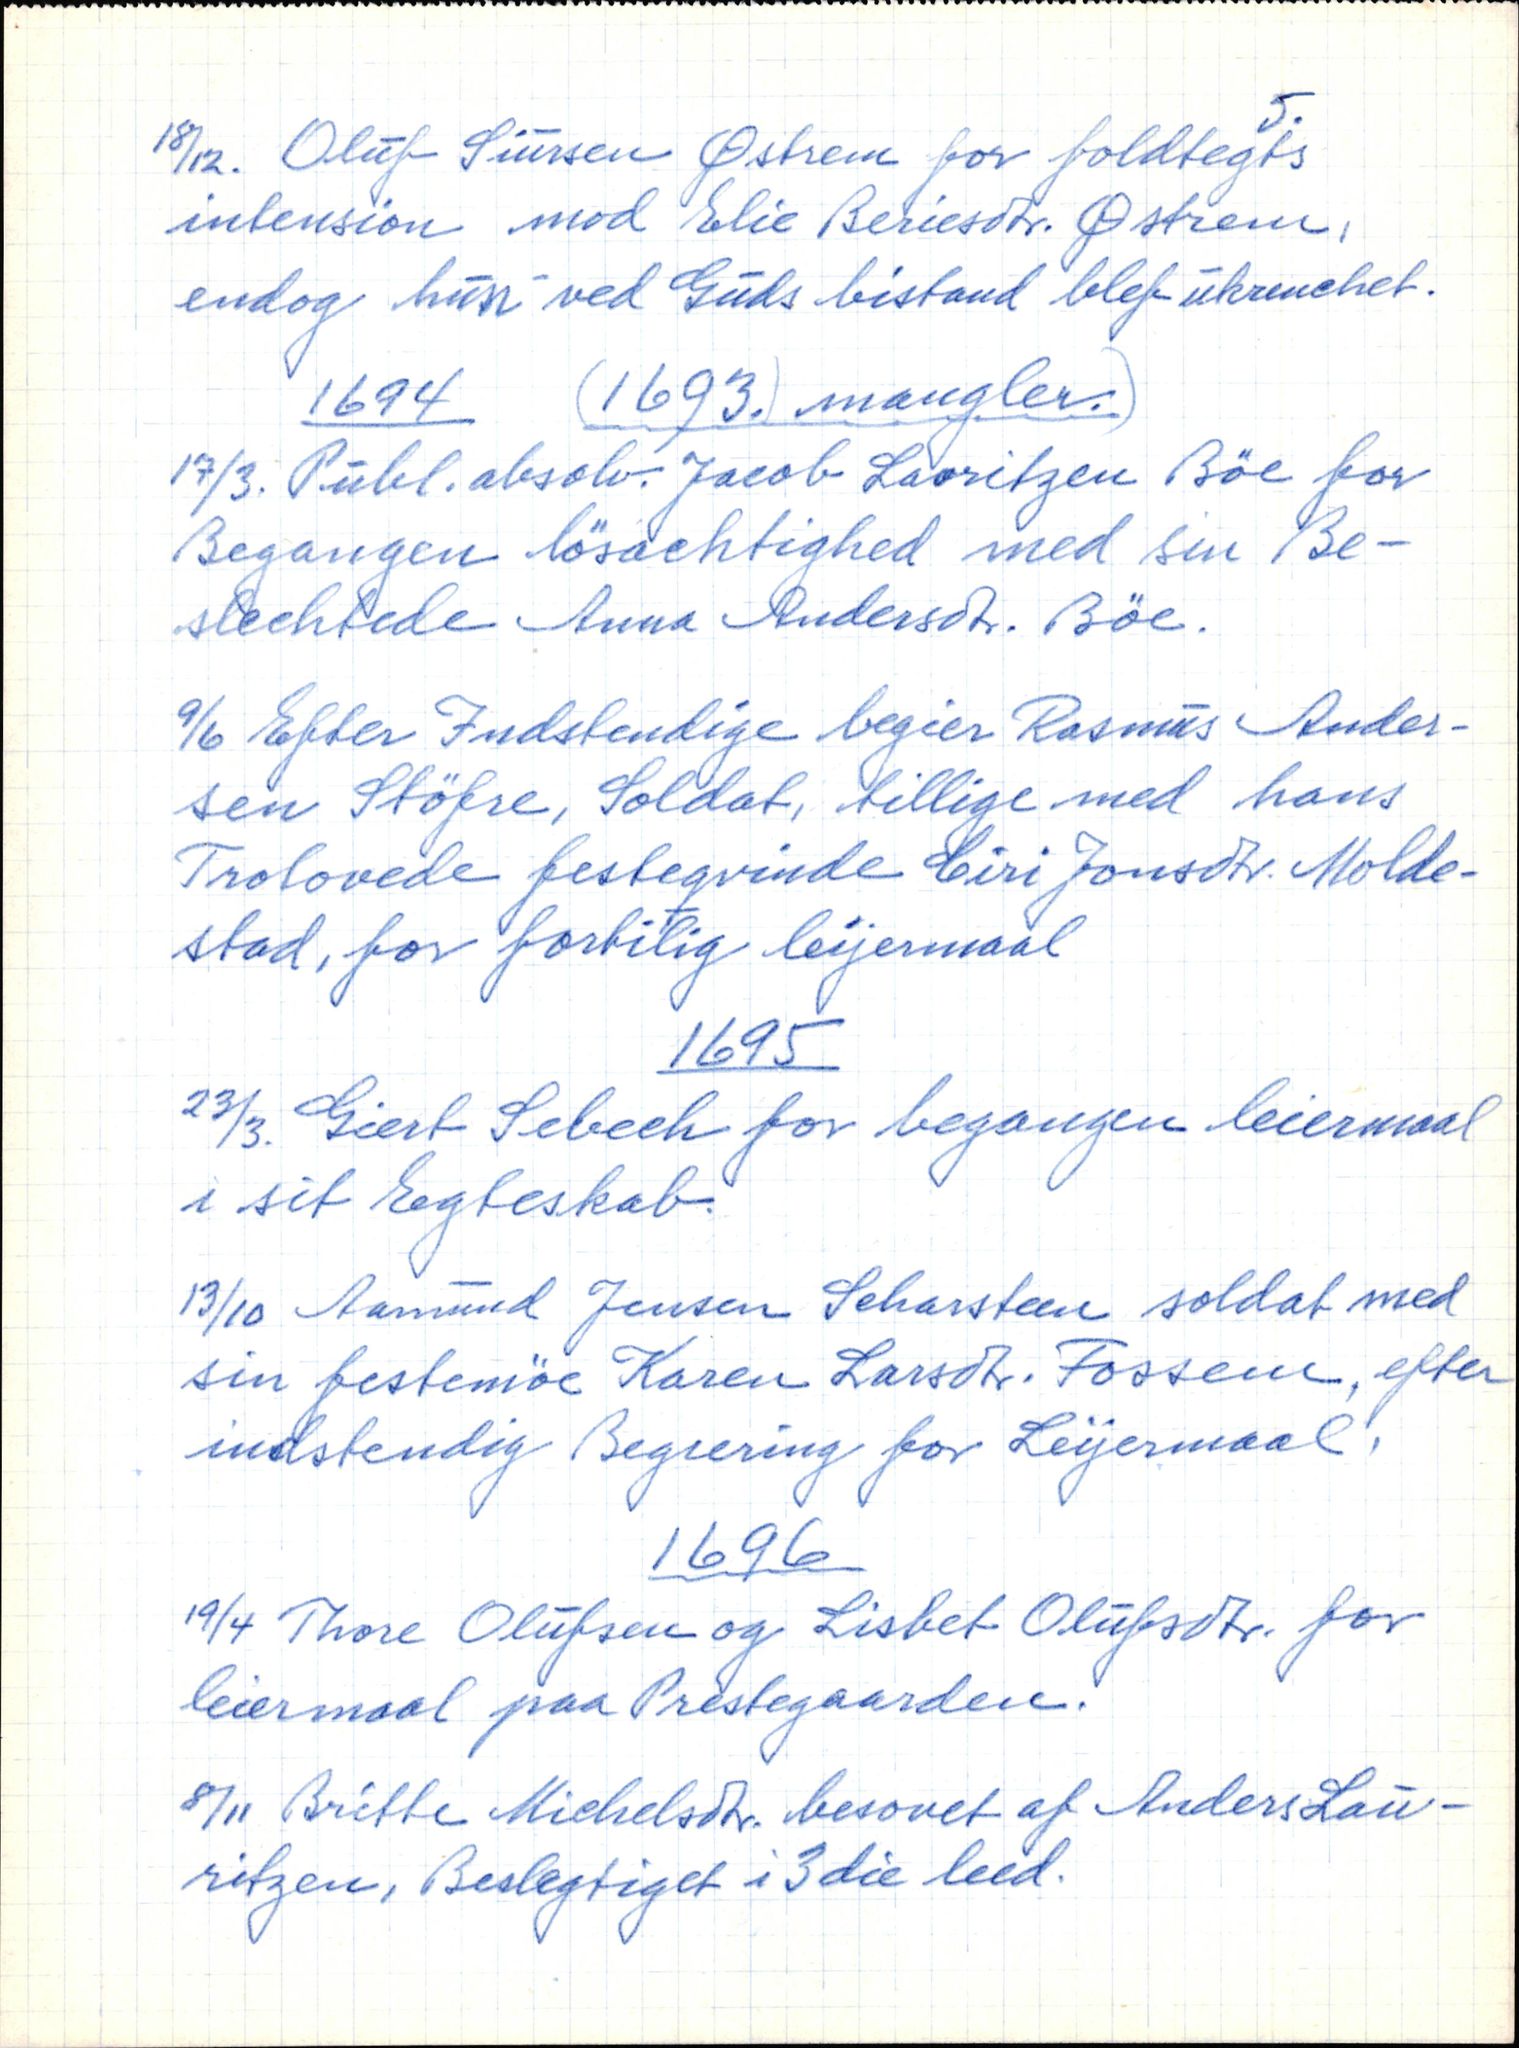 5.
18/12. Oluf Siursen Østrem for foldtegts
intension mod Elie Beriesdtr. Østrem,
endog hun ved Guds bistand blef ukrenchet.
1694 (1693.) mangler.)
17/3. Publ. absolv. Jacob Lavritzen Böe for
Begangen lösachtighed med sin Be-
slechtede Anna Andersdtr. Böe.
9/6 Efter Indstendige begier Rasmus Ander-
sen Stöfre, Soldat, tillige med hans
Trolovede festeqvinde Eiri Jonsdtr. Molde-
stad, for fortilig leijermaal
1695
23/3. Giert Sebech for begangen leiermaal
i sit Egteskab.
13/10 Aamund Jensen Scharsteen soldat med
sin festemöe Karen Larsdtr. Fossem, efter
indstendig Begrering for Leijermaal,
1696
19/4 Thore Olufsen og Lisbet Olufsdtr. for
leiermaal paa Prestegaarden.
8/11 Britte Michelsdtr. besovet af Anders Lau-
ritzen, Beslegtiget i 3die leed.